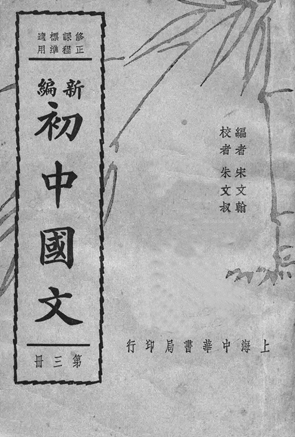 修正課程標準適用
新編
初中國文
第三冊
編者 宋文翰
校者 朱文叔
上海中華書局印行